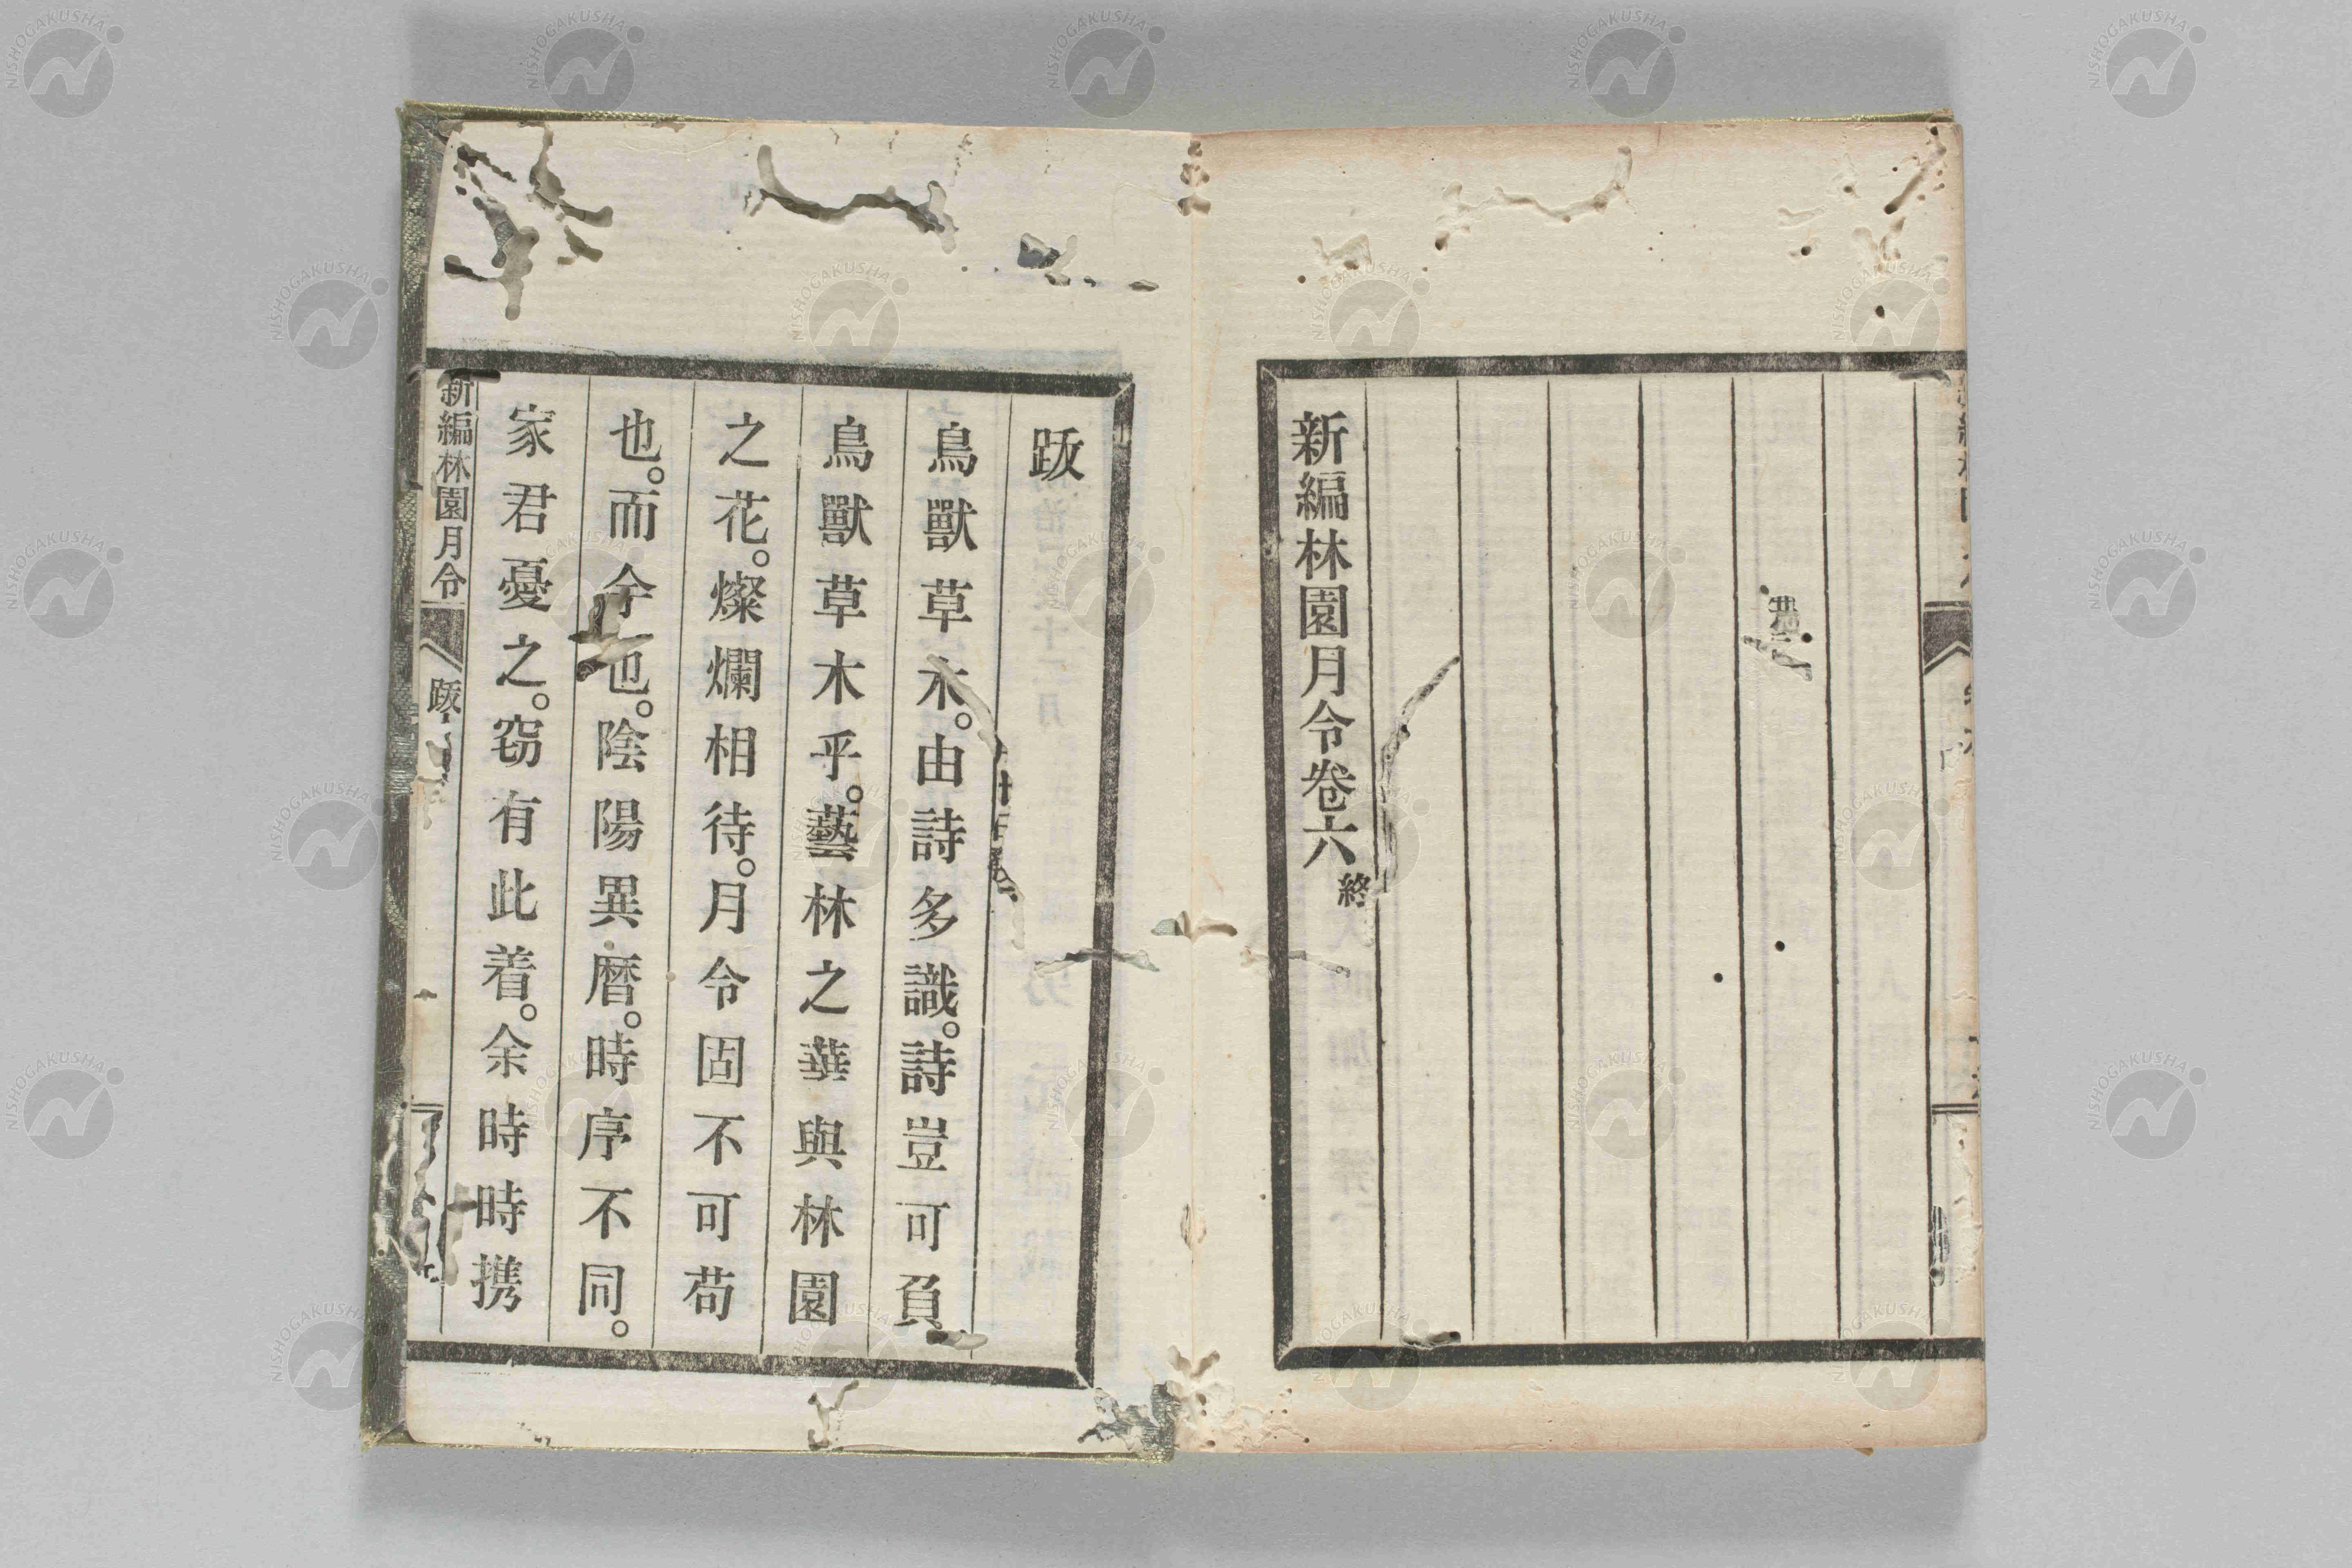 新編林園月令卷六終
跋
鳥獸草木。由詩多識。詩豈可負。
鳥獸草木乎。藝林之華與林園
之花。燦爛相待。月令固不可苟
也。而今也。陰陽異暦。時序不同。
家君憂之。窃有此着。余時時携
新編林園月令
跋
NISHOGAKUSHA